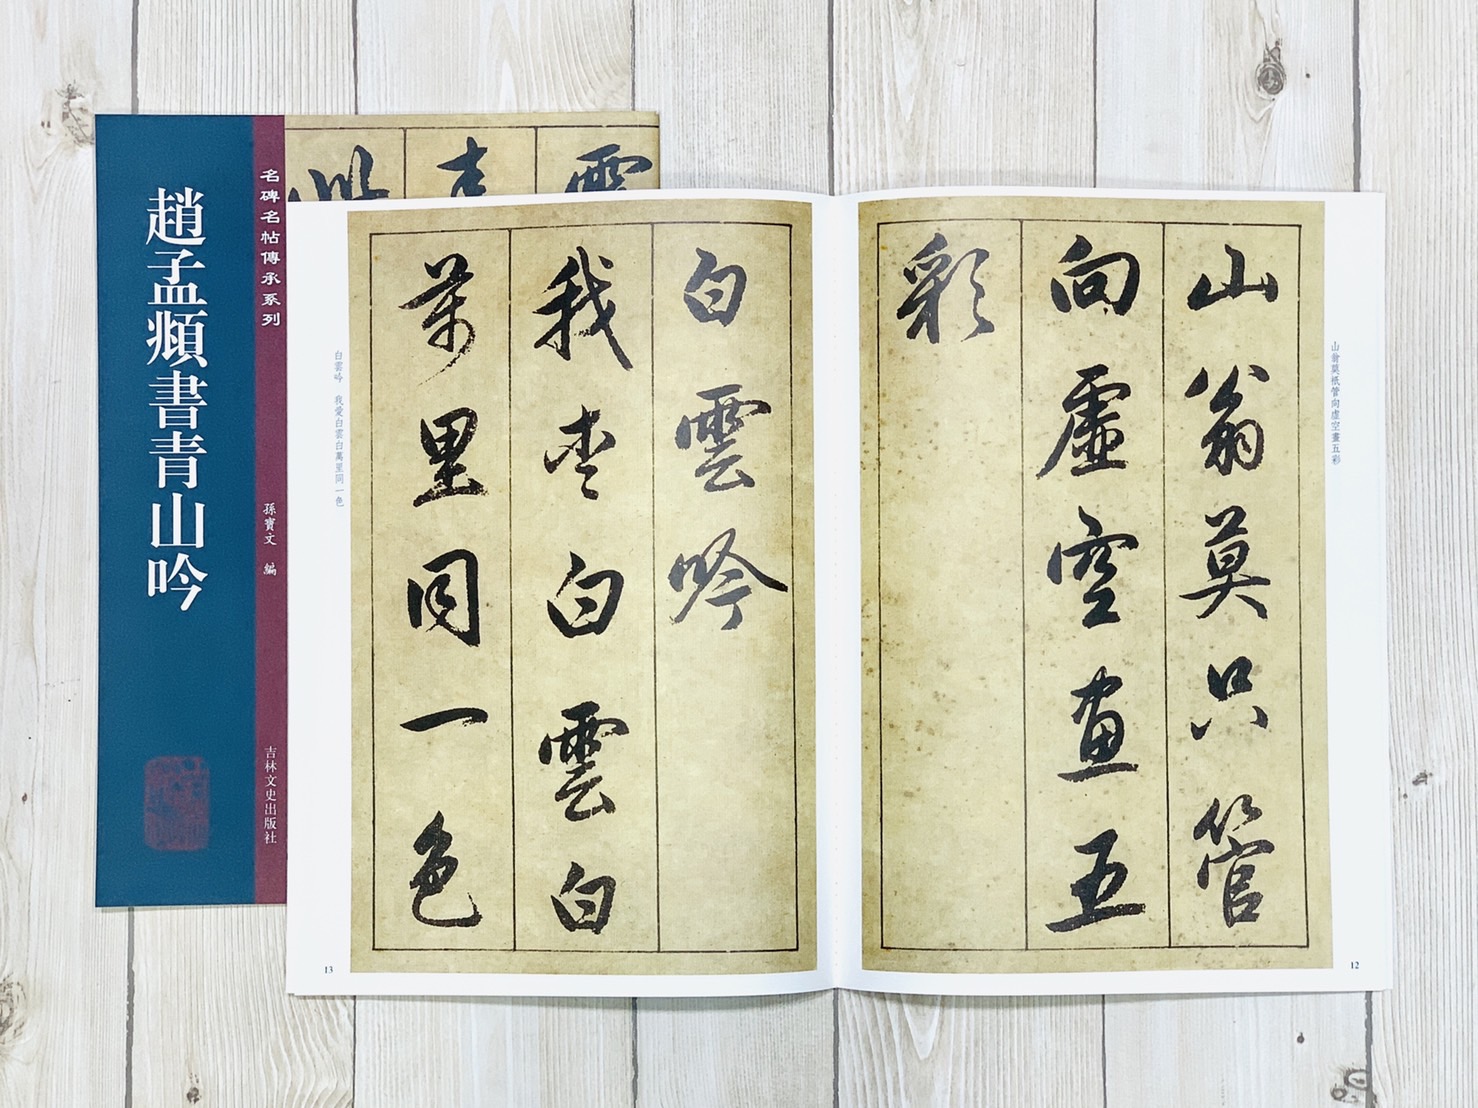 趙孟頫書青山吟
名碑名帖傳承系列
孫寶文 編
吉林文史出版社
雲
山翁莫只管
向虛空畫五
彩
山翁莫祇管向虛空畫五彩
12
白雲吟
我愛白雲白
萬里同一色
白雲吟 我愛白雲白萬里同一色
13